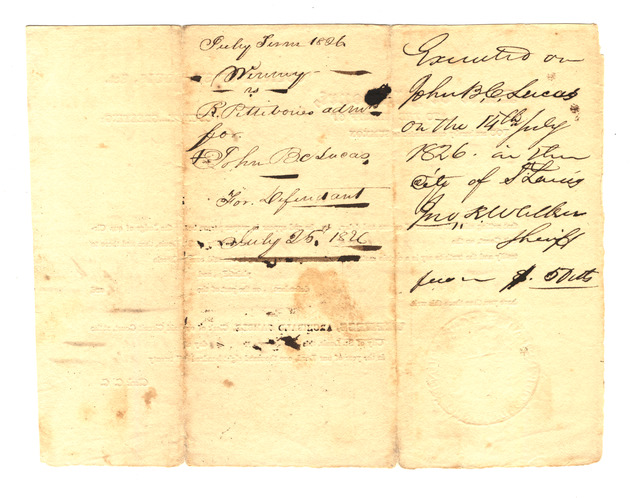 July Term 1826
Winney
vs
R. Pettibones admr
for
John B C Lucas
For Defendant
July 25th 1826
Executed on
John B. C. Lucas
on the 14th July
1826. in the
City of St Louis
Jno. K. Walker
Sheriff
50cts